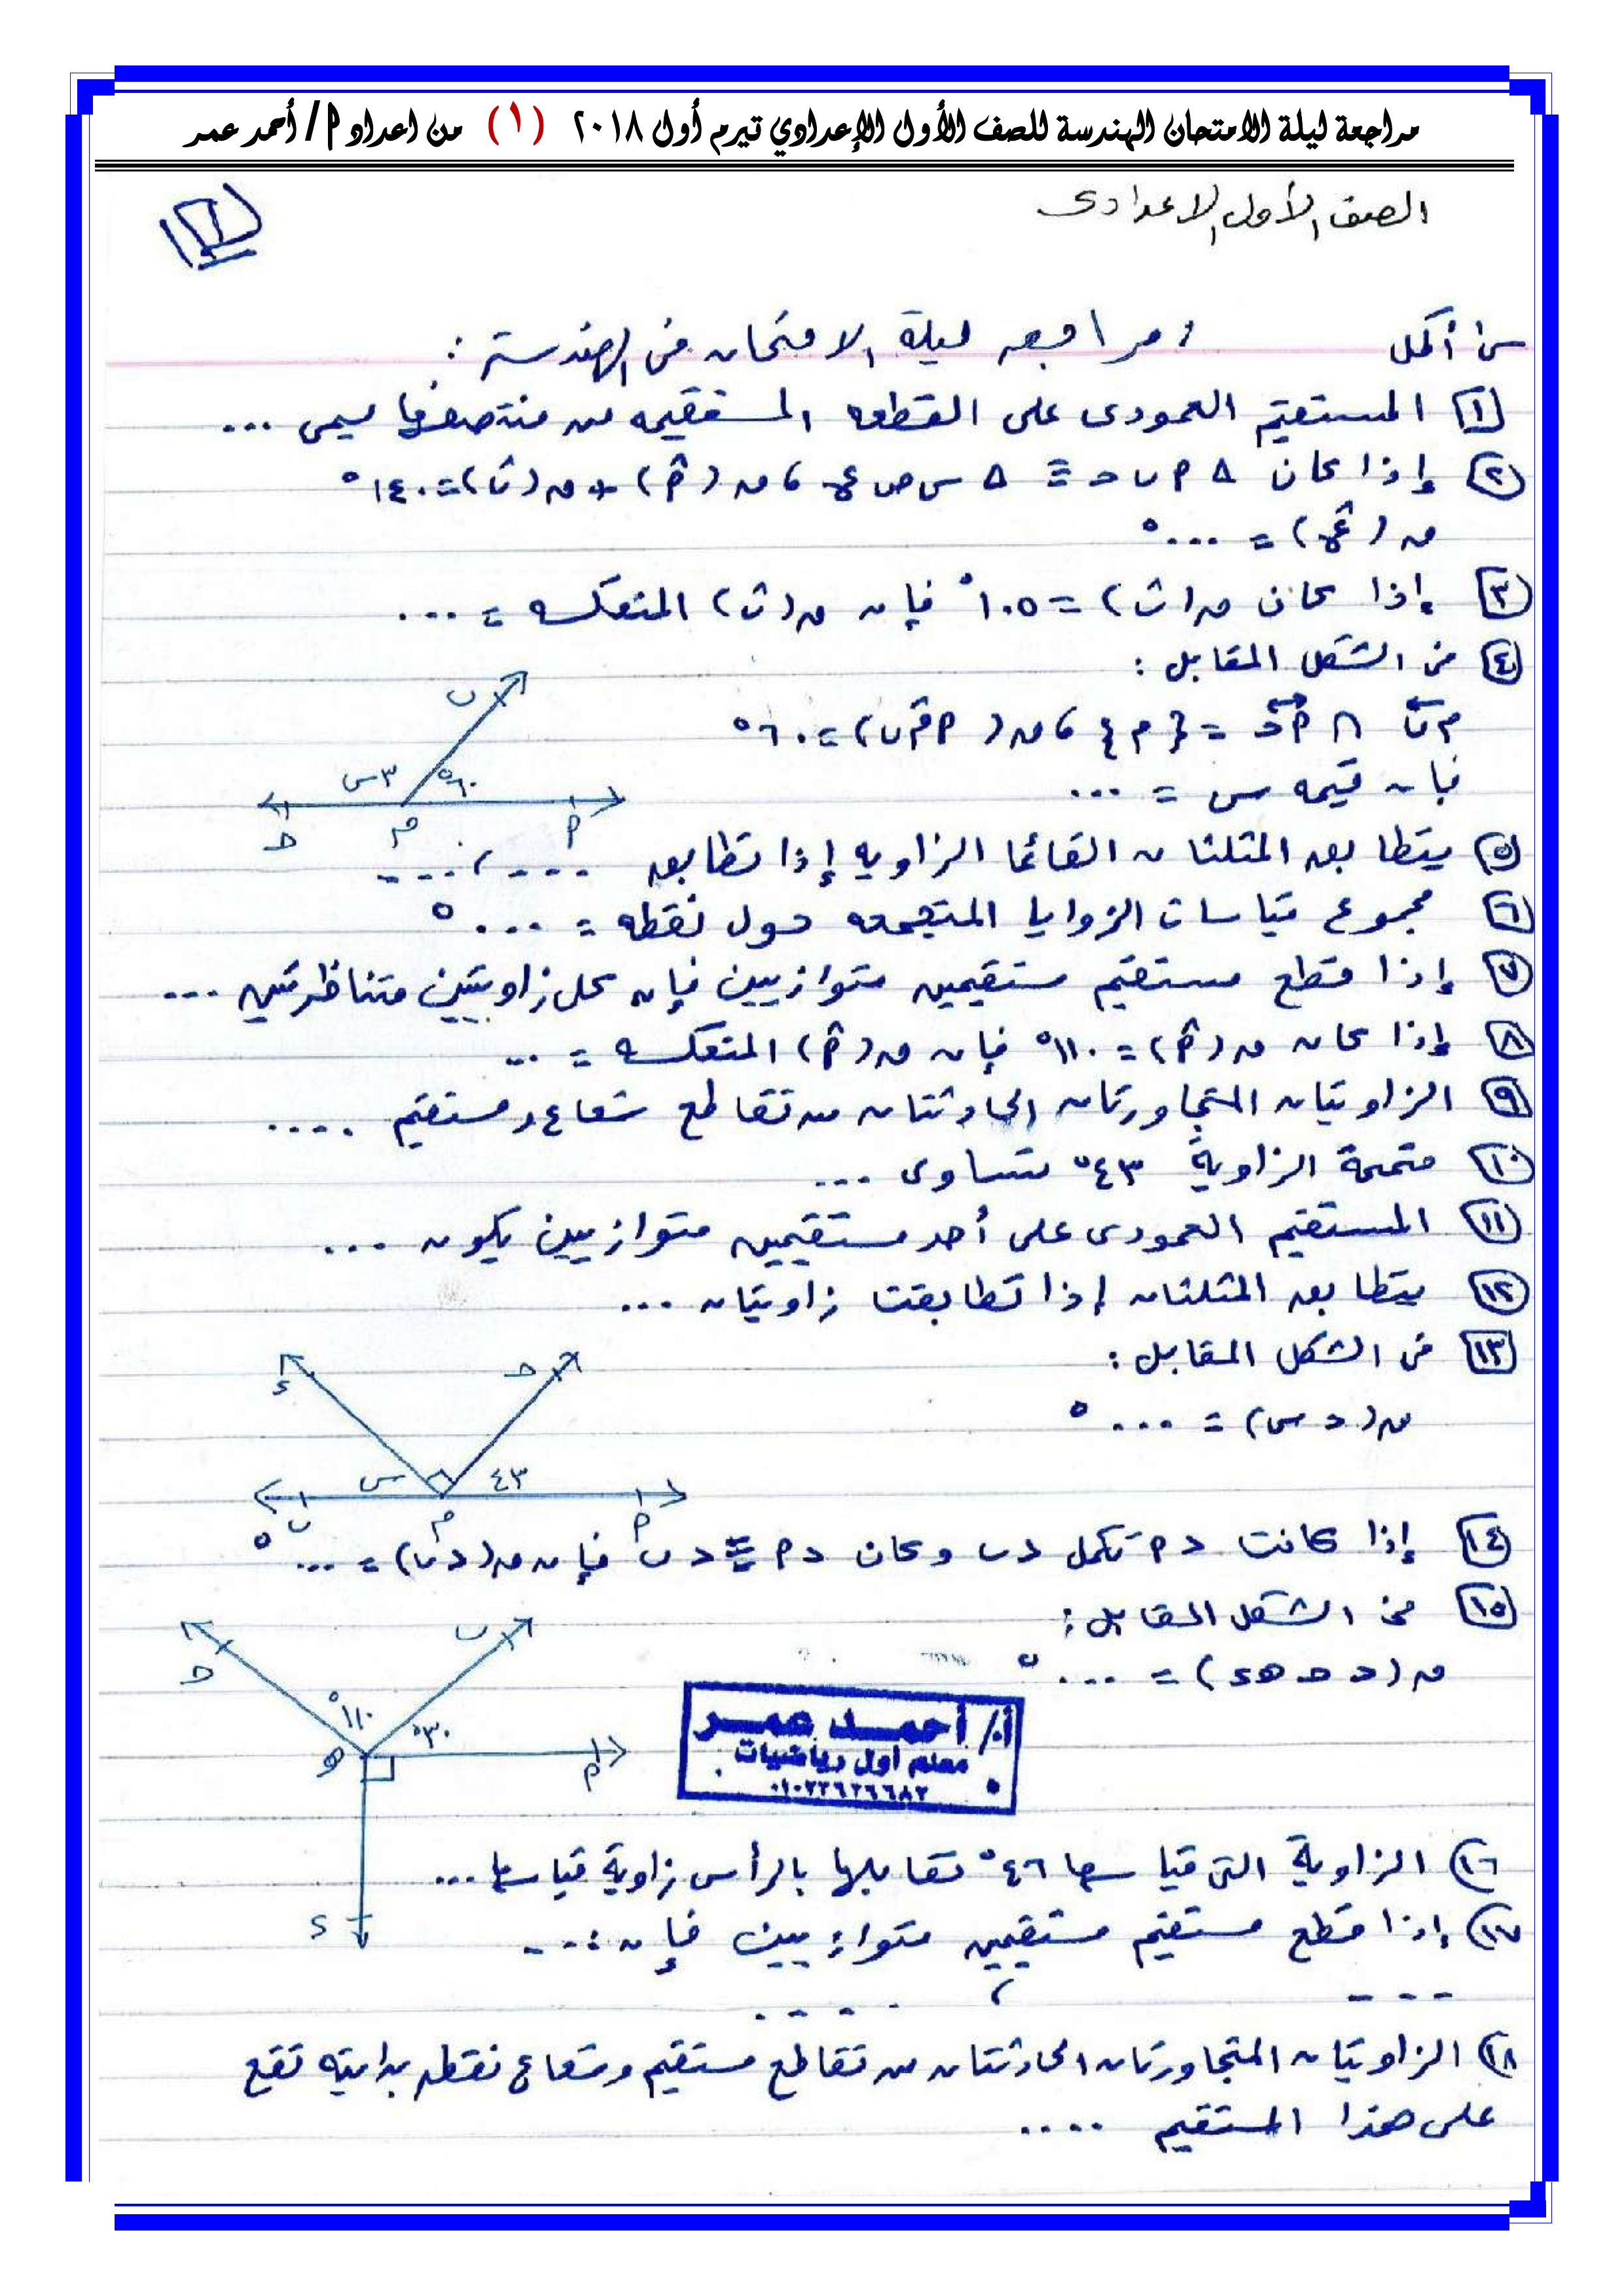 مراجعة ليلة الامتحان الهندسة للصف الأول الإعدادي تيرم أول ٢٠١٨ (١) من اعداد ا/ أحمد عمر
الصف الأول الاعدادى
١
س١ أكمل مراجعه ليلة الامتحان فى الهندسة :
١ المستقيم العمودى على القطعه المستقيمه من منتصفها يسمى ...
٢ إذا كان △ ا ب ح ≡ △ س ص ع ، ن (اٌ) + ن (بٌ) = ١٤٠°
ن (عٌ) = ...°
٣ إذا كان ن (بٌ) = ١٠٥° فإن ن (بٌ) المنعكسه = ...
٤ فى الشكل المقابل :
م ب ∩ ا ح = { م } ، ن ( ا م ب ) = ٦٠°
فإن قيمه س = ...
ب
٣س ٦٠°
ح م ا
٥ يتطابق المثلثان القائما الزاويه إذا تطابق ... ، ...
٦ مجموع قياسات الزوايا المتجمعه حول نقطه = ...°
٧ إذا قطع مستقيم مستقيمين متوازيين فإن كل زاويتين متناظرتين ...
٨ إذا كان ن (اٌ) = ١١٠° فإن ن (اٌ) المنعكسه = ..
٩ الزاويتان المتجاورتان الحادثتان من تقاطع شعاع ومستقيم ....
١٠ متممة الزاوية ٤٣° تساوى ...
١١ المستقيم العمودى على أحد مستقيمين متوازيين يكون ...
١٢ يتطابق المثلثان إذا تطابقت زاويتان ...
١٣ فى الشكل المقابل :
ن (د س) = ...°
ء ح
س ٤٣
ب م ا
١٤ إذا كانت د ا تكمل د ب وكان د ا ≡ د ب فإن ن (د ب) = ...°
١٥ فى الشكل المقابل :
ن (د ح ه ء) = ...°
ح ب
١١٠° ٣٠°
ه ا
ء
أ/ أحمد عمر
معلم أول رياضيات
٠١٠٢٢٦٢٦٦٨٢
١٦ الزاوية التى قياسها ٤٦° تقابلها بالرأس زاوية قياسها ...
١٧ إذا قطع مستقيم مستقيمين متوازيين فإن : ...
... ، ....
١٨ الزاويتان المتجاورتان الحادثتان من تقاطع مستقيم وشعاع نقطه بدايته تقع
على هذا المستقيم ....